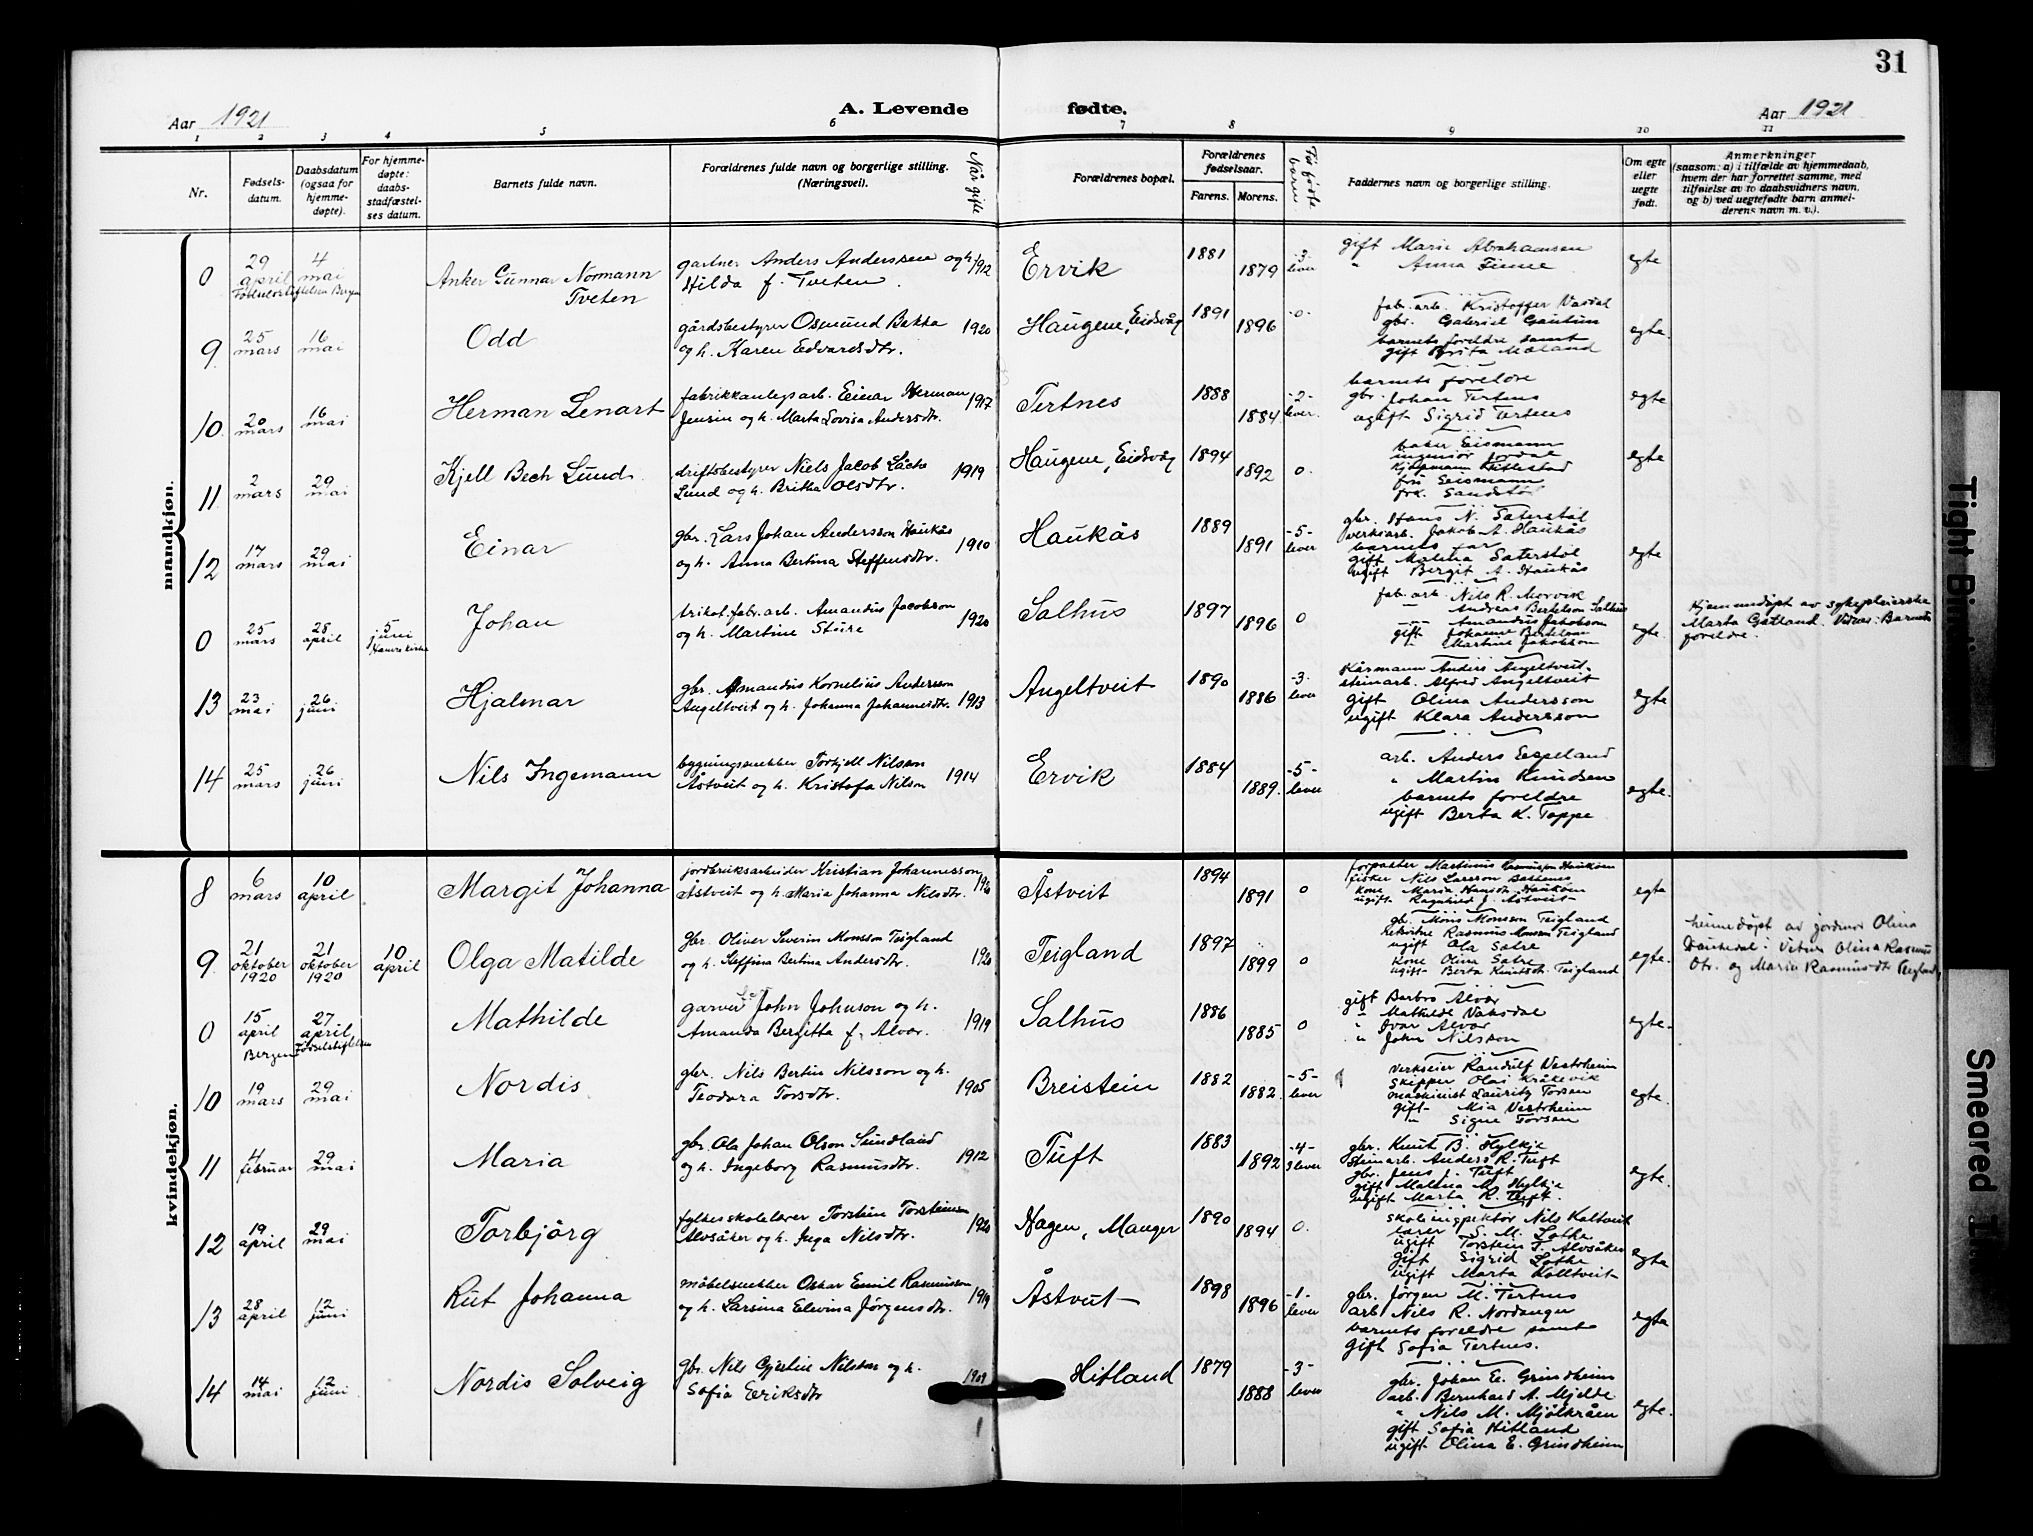 31
Aar 1921
A. Levende
fødte.
Aar 1921
1 2 3 4 5 6 7 8 9 10 11
Nr.
Fødsels-
datum.
Daabsdatum
(ogsaa for
hjemme-
døpte).
For hjemme-
døpte:
daabs-
stadfæstel-
ses datum.
Barnets fulde navn.
Forældrenes fulde navn og borgerlige stilling.
(Næringsvei).
Når gifte
Forældrenes bopæl.
Forældrenes
fødselsaar.
Farens. Morens.
Før fødte
barn.
Faddernes navn og borgerlige stilling.
Om egte
eller
uegte
født.
Anmerkninger
(saasom: a) i tilfælde av hjemmedaab,
hvem der har forrettet samme, med
tilføielse av to daabsvidners navn,
og b) ved uegtefødte barn anmel-
derens navn m. v.).
mandkjøn.
0 29 april 4 mai Anker Gunnar Normann Tveten
gartner Anders Anderssen og h.
Hilda f. Tveten. 1912
Ervik 1881 1879 -3- lever
gift Marie Abrahamsen
" Anna Finne
egte
9 25 mars 16 mai Odd
gårdsbestyrer Osmund Bakka
og h. Karen Edvardsdtr. 1920
Haugene, Eidsvåg 1891 1896 -0-
fabr. arb. Kristoffer Vasdal
gbr. Gabriel Gautun
barnets foreldre samt
gift Brita Mæland
egte.
10 20 mars 16 mai Herman Lenart
fabrikkanlegsarb. Einar Herman
Jensen og h. Marta Lovisa Andersdtr. 1917
Tertnes 1888 1884 -2- lever.
barnets foreldre
gbr. Johan Tertnes
ugift Sigrid Tertnes
egte
11 2 mars 29 mai Kjell Bech Lund
driftsbestyrer Niels Jacob Låche
Lund og h. Britha Olsdtr. 1919
Haugene, Eidsvåg 1894 1892 0
baker Eismann
ingeniør Jordal
kjøpmann Kittlestad
fru Eismann
frk. Sandstøl
egte
12 17 mars 29 mai Einar
gbr. Lars Johan Andersson Haukås
og h. Anna Bertina Steffensdtr. 1910
Haukås 1889 1891 -5- lever
gbr. Hans N. Säterstøl
verksarb. Jakob A. Haukås
barnets far
gift Malena Säterstøl
ugift Bergit A. Haukås
egte
0 25 mars 28 april 5 juni Hamre kirke Johan
trikot.fabr.arb. Amandus Jacobson
og h. Martine Sture 1920
Salhus 1897 1896 0
fab. arb. Nils R. Morvik
Andreas Bertelson Salhus
Amandus Jakobson
gift Johanne Bertelson
" Martine Jakobson
egte.
Hjemmedøpt av sykepleierske
Marta Gatland. Vidner: Barnets
foreldre.
13 23 mai 26 juni Hjalmar
gbr. Amandus Kornelius Andersson
Angeltveit og h. Johanna Johannesdtr. 1913
Angeltveit 1890 1886 -3- lever
Kårmann Anders Angeltveit
steinarb. Alfred Angeltveit
gift Olina Andersson
ugift Klara Andersson
egte
14 25 mars 26 juni Nils Ingemann
bygningsnekker Torkjell Nilsson
Åstveit og h. Kristofa Nilson 1914
Ervik 1884 1889. -5- lever
arb. Anders Espeland
" Martin Knudsen
barnets foreldre
ugift Berta K. Toppe
egte.
kvindekjøn.
8 6 mars 10 april Margit Johanna
jordbruksarbeider Kristian Johannesson
Åstveit og h. Maria Johanna Nilsdtr. 1920
Åstveit 1894 1891 0
forpakter Martinus Rasmusson Haukom
fisker Nils Larsson
kone Maria Hansdtr. Haukom
ugift Ragnhild J. Åstveit
egta
9 21 oktober 1920 21 oktober 1920 10 april Olga Matilde
gbr. Oliver Severin Monsson Teigland
og h. Steffina Bertina Andersdtr. 1920
Teigland 1897 1899 0
gbr. Mons Monsson Teigland
Rasmus Monsson Teigland
ugift Ola Sætre
kone Olina Sætre
ugift Berta Knutsdtr. Teigland
egte.
heimedøpt av jordmor Olina
Vitner Olina Rasmus
dtr. og Maria Rasmusdtr Teigland
0 15 april Bergen 27 april Fødselsstiftelsen Mathilde
garver John Johnson og h.
Amanda Bergitta f. Alver. 1919
Salhus 1886 1885 0
gift Barbro Alver
" Mathilde Vaksdal
" Ivar Alver
" John Nilsson
egte.
10 19 mars 29 mai Nordis
gbr. Nils Bertin Nilsson og h.
Teodora Torsdtr. 1905
Breistein 1882 1882. -5- lever
verkseier Randulf Vestrheim
skipper Olai Kråkevik
maskinist Lauritz Torsen
gift Mia Vestrheim
" Signe Torsen
egte.
11 4 februar 29 mai Maria
gbr. Ola Johan Olson Sundland
og h. Ingeborg Rasmusdtr. 1912
Tuft 1883 1892 -4- 3 lever
gbr. Knut B. Hylkje
steinarb. Anders R. Tuft
gbr. Jens J. Tuft
gift Malena M. Hylkje
ugift Marta R. Tuft.
egte.
12 19 april 29 mai Torbjörg
fylkesskolelærer Torstein Torsteinson
Alvsåker og h. Inga Nilsdtr. 1920
Hagen, Manger 1890 1894 0.
skoleinspektør Nils Kaltveit
lærer S. M. Lothe
ugift Torstein T. Alvsåker
gift Sigrid Lothe
ugift Marta Kolltveit
egta
13 28 april 12 juni Rut Johanna
møbelsnekker Oskar Emil Rasmusson
og h. Larsina Elevina Jørgensdtr. 1919
Åstveit 1898 1896 -1- lever
gbr. Jørgen M. Tertnes
arb. Nils R. Nordanger
barnets foreldre samt
gift Sofia Tertnes.
egta
14 14 mai 12 juni Nordis Solveig
gbr. Nils Gjertin Nilsson og h.
Sofia Eriksdtr 1909
Hitland 1879 1888 -3- lever
gbr. Johan E. Grindheim
arb. Bernhard A. Mjelde
" Nils M. Mjölkråen
gift Sofia Hitland
ugift Olina E. Grindheim
egte.
Tight Bin
Smeared